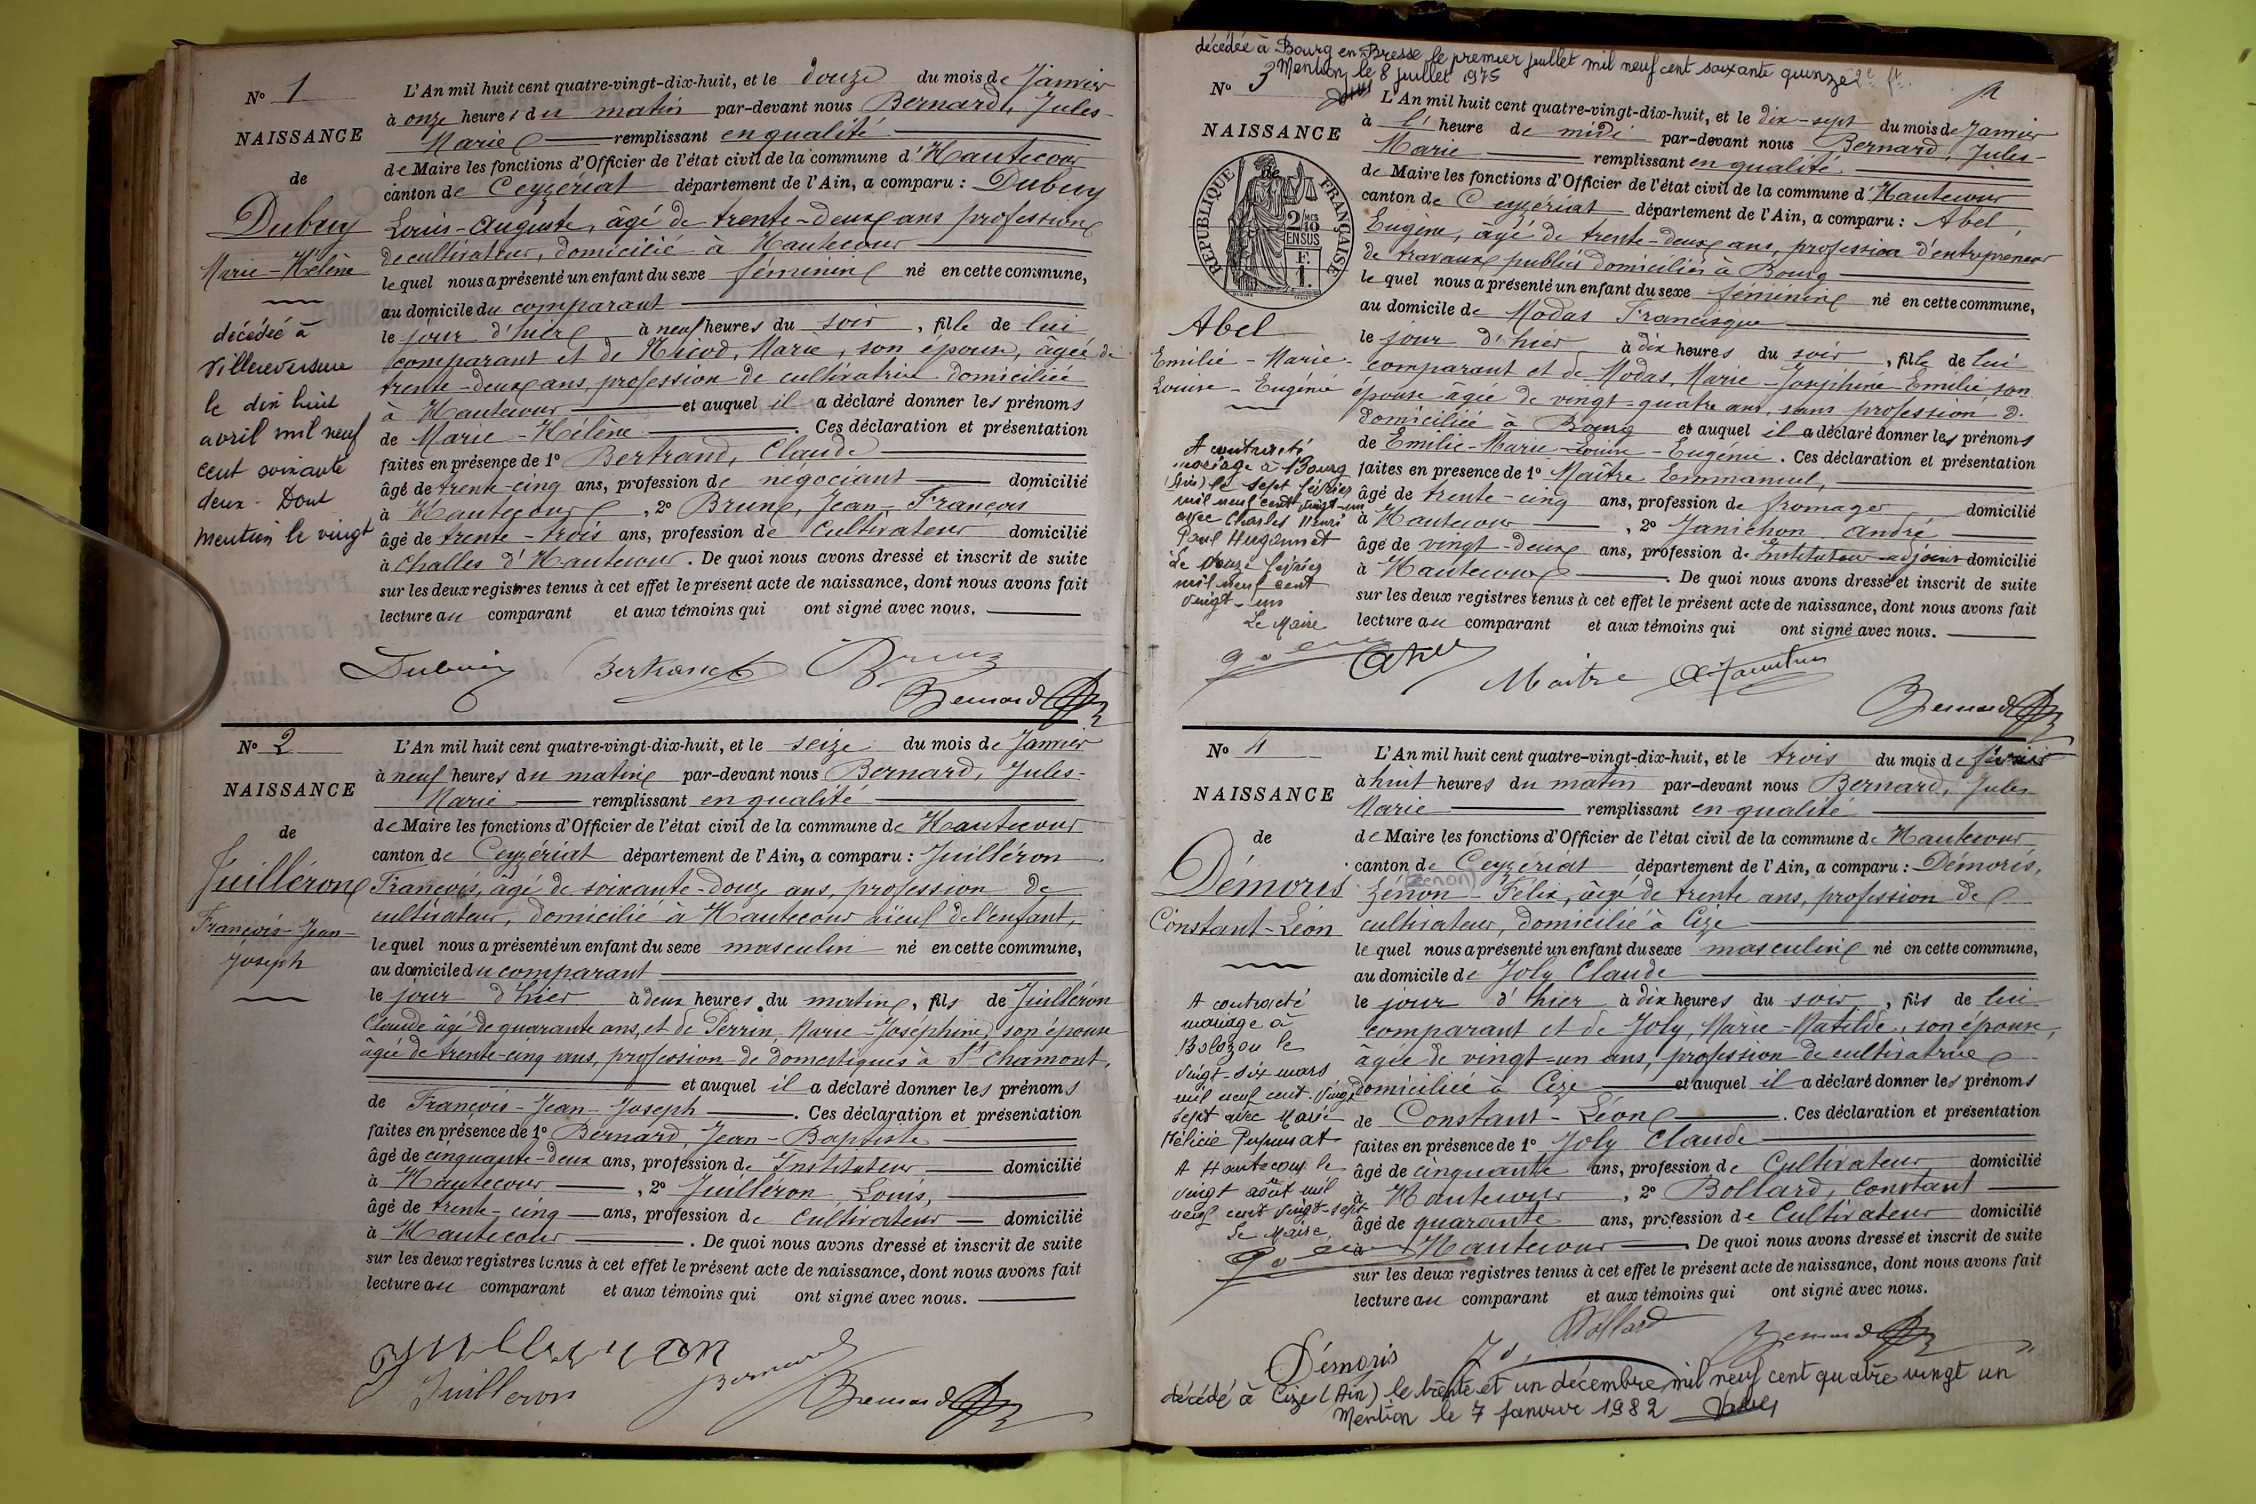 N° 1
NAISSANCE
de
Dubuy
Marie-Hélène
décédée à
Villereversure
le dix huit
avril mil neuf
cent soixante
deux. Dont
mention le vingt
L'An mil huit cent quatre-vingt-dix-huit, et le douze du mois de Janvier
à onze heures du matin par-devant nous Bernard, Jules-
Marie remplissant en qualité
de Maire les fonctions d'Officier de l'état civil de la commune d'Hautecour
canton de Ceyzériat département de l'Ain, a comparu : Dubuy
Louis-Auguste, âgé de trente-deux ans profession
de cultivateur, domicilié à Hautecour
lequel nous a présenté un enfant du sexe féminin né en cette commune,
au domicile du comparant
le jour d'hier à neuf heures du soir, fille de lui
comparant et de Nicod, Marie, son épouse, âgée de
trente-deux ans, profession de cultivatrice domiciliée
à Hautecour et auquel il a déclaré donner les prénoms
de Marie-Hélène. Ces déclaration et présentation
faites en présence de 1° Bertrand, Claude
âgé de trente-cinq ans, profession de négociant domicilié
à Hautecour, 2° Brunz, Jean-François
âgé de trente-trois ans, profession de cultivateur domicilié
à Challes d'Hautecour. De quoi nous avons dressé et inscrit de suite
sur les deux registres tenus à cet effet le présent acte de naissance, dont nous avons fait
lecture au comparant et aux témoins qui ont signé avec nous.
Dubuy Bertrand Brunz
Bernard
N° 2
NAISSANCE
de
Juilléron
François-Jean-
Joseph
L'An mil huit cent quatre-vingt-dix-huit, et le seize du mois de Janvier
à neuf heures du matin par-devant nous Bernard, Jules-
Marie remplissant en qualité
de Maire les fonctions d'Officier de l'état civil de la commune de Hautecour
canton de Ceyzériat département de l'Ain, a comparu : Juilléron
François, âgé de soixante-douze ans, profession de
cultivateur, domicilié à Hautecour aïeul de l'enfant,
lequel nous a présenté un enfant du sexe masculin né en cette commune,
au domicile du comparant
le jour d'hier à deux heures du matin, fils de Juilléron
Claude âgé de quarante ans, et de Perrin, Marie-Joséphine, son épouse
âgée de trente-cinq ans, profession de domestiques à St Chamont,
et auquel il a déclaré donner les prénoms
de François-Jean-Joseph. Ces déclaration et présentation
faites en présence de 1° Bernard, Jean-Baptiste
âgé de cinquante-deux ans, profession de Instituteur domicilié
à Hautecour, 2° Juilléron Louis,
âgé de trente-cinq ans, profession de cultivateur domicilié
à Hautecour. De quoi nous avons dressé et inscrit de suite
sur les deux registres tenus à cet effet le présent acte de naissance, dont nous avons fait
lecture au comparant et aux témoins qui ont signé avec nous.
Juilleron
Juilleron Bernard Bernard
décédée à Bourg en Bresse le premier juillet mil neuf cent soixante quinze
Mention le 8 juillet 1975
N° 3
NAISSANCE
de
RÉPUBLIQUE FRANÇAISE
2/10 MES
EN SUS
F.
1.
Abel
Emilie-Marie-
Louise-Eugénie
A contracté
mariage à Bourg
(Ain) le sept février
mil neuf cent vingt-un
avec Charles Henri
Paul Hugonnet
Le douze février
mil neuf cent
vingt-un
Le Maire
L'An mil huit cent quatre-vingt-dix-huit, et le dix-sept du mois de Janvier
à l'heure de midi par-devant nous Bernard, Jules-
Marie remplissant en qualité
de Maire les fonctions d'Officier de l'état civil de la commune d'Hautecour
canton de Ceyzériat département de l'Ain, a comparu : Abel,
Eugène, âgé de trente-deux ans, profession d'entrepreneur
de travaux publics domicilié à Bourg
lequel nous a présenté un enfant du sexe féminin né en cette commune,
au domicile de Modas Francisque
le jour d'hier à dix heures du soir, fille de lui
comparant et de Modas, Marie-Joséphine Emilie, son
épouse âgée de vingt-quatre ans, sans profession,
domiciliée à Bourg et auquel il a déclaré donner les prénoms
de Emilie-Marie-Louise-Eugénie. Ces déclaration et présentation
faites en présence de 1° Maître Emmanuel,
âgé de trente-cinq ans, profession de fromager domicilié
à Hautecour, 2° Janichon André
âgé de vingt-deux ans, profession de Instituteur adjoint domicilié
à Hautecour. De quoi nous avons dressé et inscrit de suite
sur les deux registres tenus à cet effet le présent acte de naissance, dont nous avons fait
lecture au comparant et aux témoins qui ont signé avec nous.
Abel Maitre
Bernard
N° 4
NAISSANCE
de
Démoris
Constant-Léon
A contracté
mariage à
Bolozon le
vingt-six mars
mil neuf cent vingt
sept avec Marie
Félicie Pupunat
A Hautecour le
vingt août mil
neuf cent vingt-sept
Le Maire,
L'An mil huit cent quatre-vingt-dix-huit, et le trois du mois de février
à huit heures du matin par-devant nous Bernard, Jules
Marie remplissant en qualité
de Maire les fonctions d'Officier de l'état civil de la commune de Hautecour
canton de Ceyzériat département de l'Ain, a comparu : Démoris,
(Zénon)
Zénon-Félix, âgé de trente ans, profession de
cultivateur, domicilié à Cize
lequel nous a présenté un enfant du sexe masculin né en cette commune,
au domicile de Joly Claude
le jour d'hier à dix heures du soir, fils de lui
comparant et de Joly, Marie-Matilde, son épouse,
âgée de vingt-un ans, profession de cultivatrice
domiciliée à Cize et auquel il a déclaré donner les prénoms
de Constant-Léon. Ces déclaration et présentation
faites en présence de 1° Joly Claude
âgé de cinquante ans, profession de Cultivateur domicilié
à Hautecour, 2° Bollard, Constant
âgé de quarante ans, profession de Cultivateur domicilié
à Hautecour. De quoi nous avons dressé et inscrit de suite
sur les deux registres tenus à cet effet le présent acte de naissance, dont nous avons fait
lecture au comparant et aux témoins qui ont signé avec nous.
Démoris Bollard Bernard
décédé à Cize (Ain) le trente et un décembre mil neuf cent quatre vingt un
Mention le 7 janvier 1982